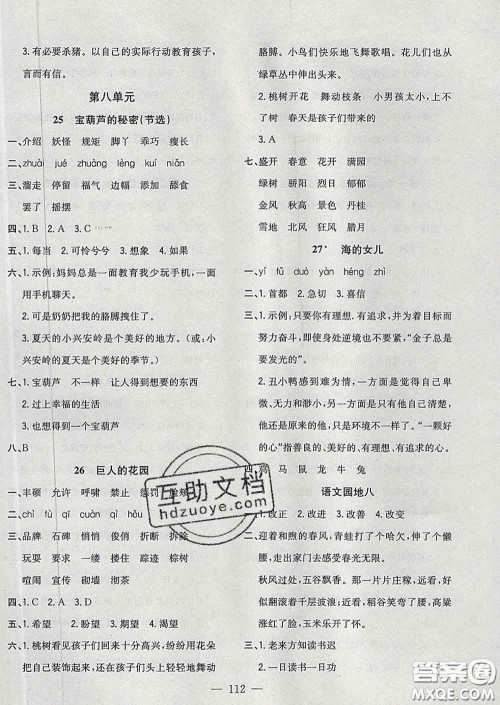 3. 有必要杀猪。以自己的实际行动教育孩子，
言而有信。
第八单元
25 宝葫芦的秘密(节选)
一、介绍 妖怪 规矩 脚丫 乖巧 瘦长
二、zhuài jué zhuàng lèng kuí niǎn
三、溜走 停留 福气 边幅 添加 舔食
罢了 摇摆
四、1. B 2. A 3. C
五、1. 每当 2. 可怜兮兮 3. 想象 4. 如果
六、1. 示例：妈妈总是一面教育我少玩手机，一面
用手机聊天。
2. 可是奶奶把我的胳膊拽住了。
3. 夏天的小兴安岭是个美好的地方。(或：小
兴安岭的夏天是个美好的季节。)
七、1. 宝葫芦 不一样 让人入迷的东西
2. 过上幸福的生活
3. 也想得到一个宝葫芦
八、B
26 巨人的花园
一、丰硕 允许 呼啸 禁止 惩罚
二、chì fǔ qī cān qì hǒu
三、品牌 石碑 悄悄 俊俏 折断 拆除
玩耍 要求 喽啰 搂抱 踪迹 棕树
喧闹 宣传 砌墙 沏茶
四、1. B 2. A 3. D
五、1. 希望 2. 盼望 3. 期望 4. 渴望
六、1. 桃树看见孩子们回来十分高兴，纷纷用花朵
把自己装饰起来，还在孩子们头上轻轻地舞动
胳膊。小鸟们快乐地飞舞歌唱。花儿们也从
绿草丛中伸出头来。
2. 桃树开花 舞动枝条 小男孩太小，爬不了
树 春天是孩子们带来的
3. A
七、盛开 春意 花开 满园
绿树 骄阳 烈日 浓荫
金风 秋高 景色 丹桂
雪地 北风 寒冬 冬日
27* 海的女儿
一、yí fǔ duò yàn héng zhì
二、1. 首都 2. 急切 3. 喜信
三、1. 示例：只要有理想、有追求，并为目标而
努力奋斗，即使身处逆境也不要紧，“金子总是
要发光的”。
2. 丑小鸭感到太难为情，一方面是觉得自己卑
微、无关紧要和渺小，另一方面是他虽然出生在
他原来的环境，但他有理想、有追求。“一颗
好的心”指善良的、有理想、有追求的心。
四、鸡 马 鼠 龙 牛 兔
语文园地八
一、1. 改变 2. 改进 3. 改善 4. 改正 5. 改变
二、迎着和煦的春风，青蛙们个个鼓起大眼睛，好
像在感受春光无限。
秋风过处，五谷飘香。那一片片庄稼，远看，好
似翻滚着千层巨浪；近看，高粱涨红了脸，稻子
笑弯了腰，玉米乐开了花。
三、1. 老来方知读书迟
2. 一日读书一日功
— 112 —
互助文档
hdzuoye.com
答案圈
MXQE.COM